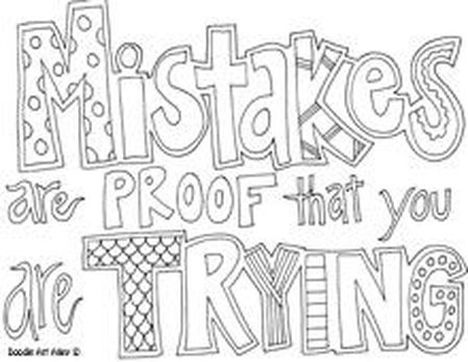 Mistakes
are PROOF that you
are TRYING
Doodle Art Alley ©